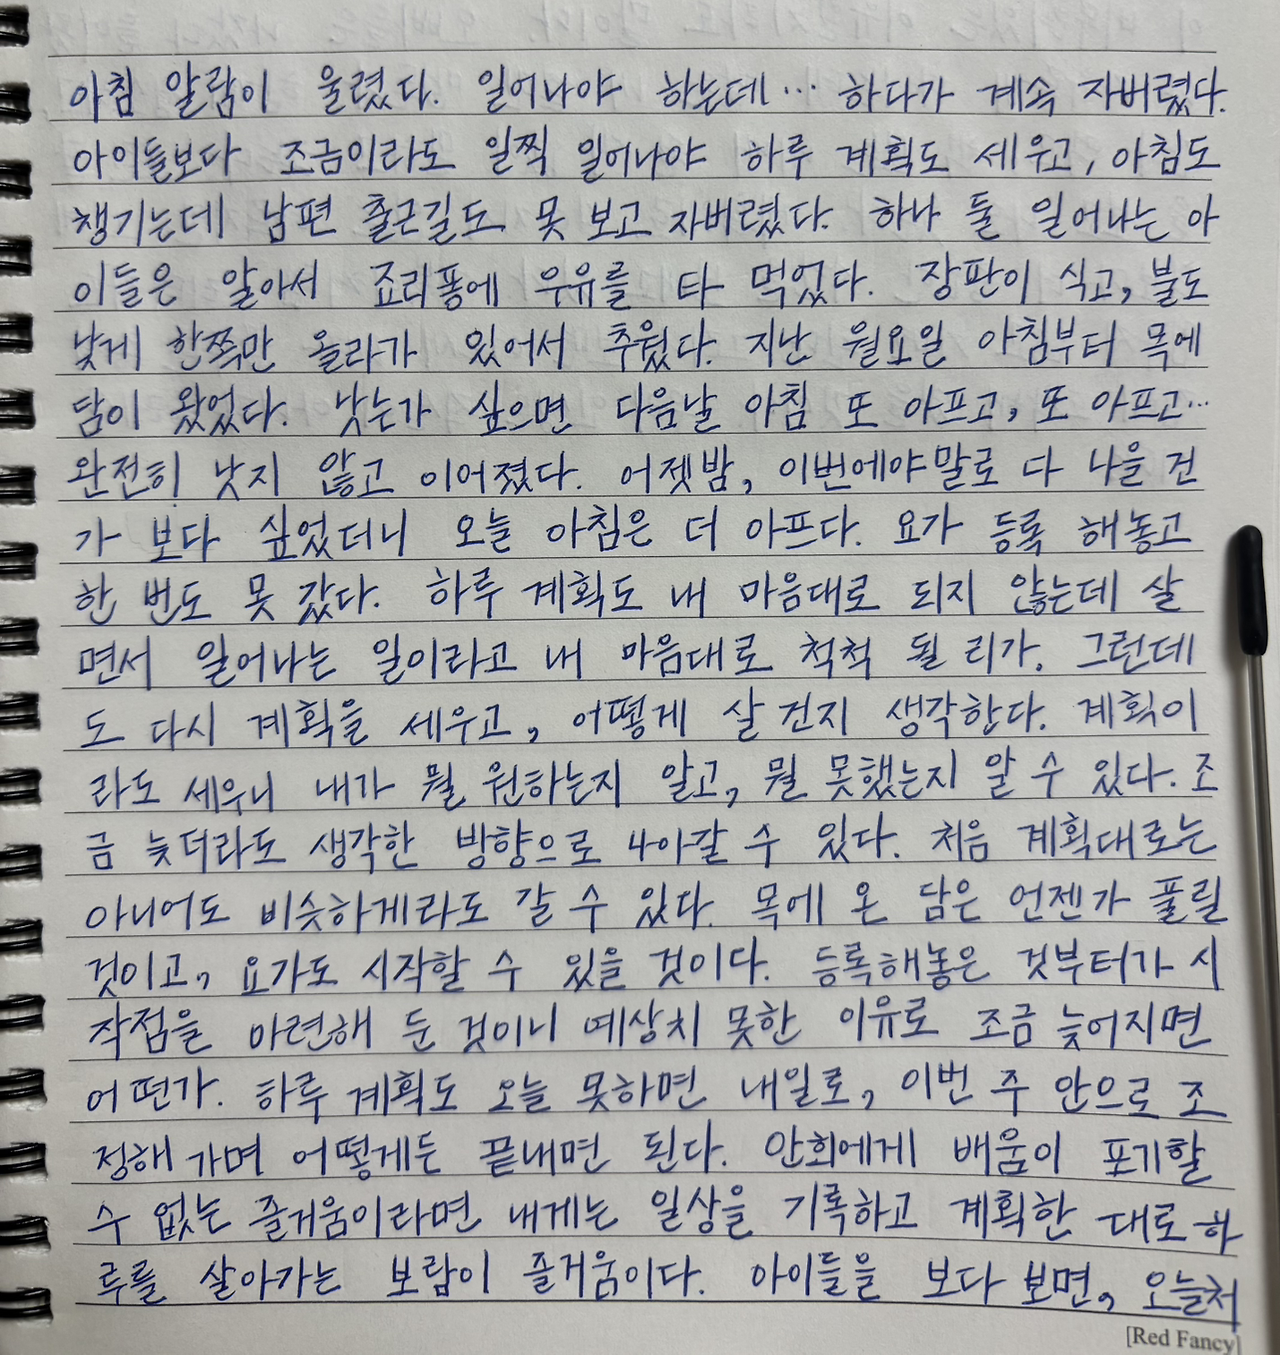 아침 알람이 울렸다. 일어나야 하는데… 하다가 계속 자버렸다.
아이들보다 조금이라도 일찍 일어나야 하루 계획도 세우고, 아침도
챙기는데 남편 출근길도 못 보고 자버렸다. 하나 둘 일어나는 아
이들은 알아서 죠리퐁에 우유를 타 먹었다. 장판이 식고, 불도
낮게 한쪽만 올라가 있어서 추웠다. 지난 월요일 아침부터 목에
담이 왔었다. 낫는가 싶으면 다음날 아침 또 아프고, 또 아프고…
완전히 낫지 않고 이어졌다. 어젯밤, 이번에야말로 다 나을 건
가 보다 싶었더니 오늘 아침은 더 아프다. 요가 등록 해놓고
한 번도 못 갔다. 하루 계획도 내 마음대로 되지 않는데 살
면서 일어나는 일이라고 내 마음대로 척척 될 리가. 그런데
도 다시 계획을 세우고, 어떻게 살 건지 생각한다. 계획이
라도 세우니 내가 뭘 원하는지 알고, 뭘 못했는지 알 수 있다. 조
금 늦더라도 생각한 방향으로 나아갈 수 있다. 처음 계획대로는
아니어도 비슷하게라도 갈 수 있다. 목에 온 담은 언젠가 풀릴
것이고, 요가도 시작할 수 있을 것이다. 등록해놓은 것부터가 시
작점을 마련해 둔 것이니 예상치 못한 이유로 조금 늦어지면
어떤가. 하루 계획도 오늘 못하면 내일로, 이번 주 안으로 조
정해 가며 어떻게든 끝내면 된다. 안희에게 배움이 포기할
수 없는 즐거움이라면 내게는 일상을 기록하고 계획한 대로 하
루를 살아가는 보람이 즐거움이다. 아이들을 보다 보면, 오늘처
[Red Fancy]